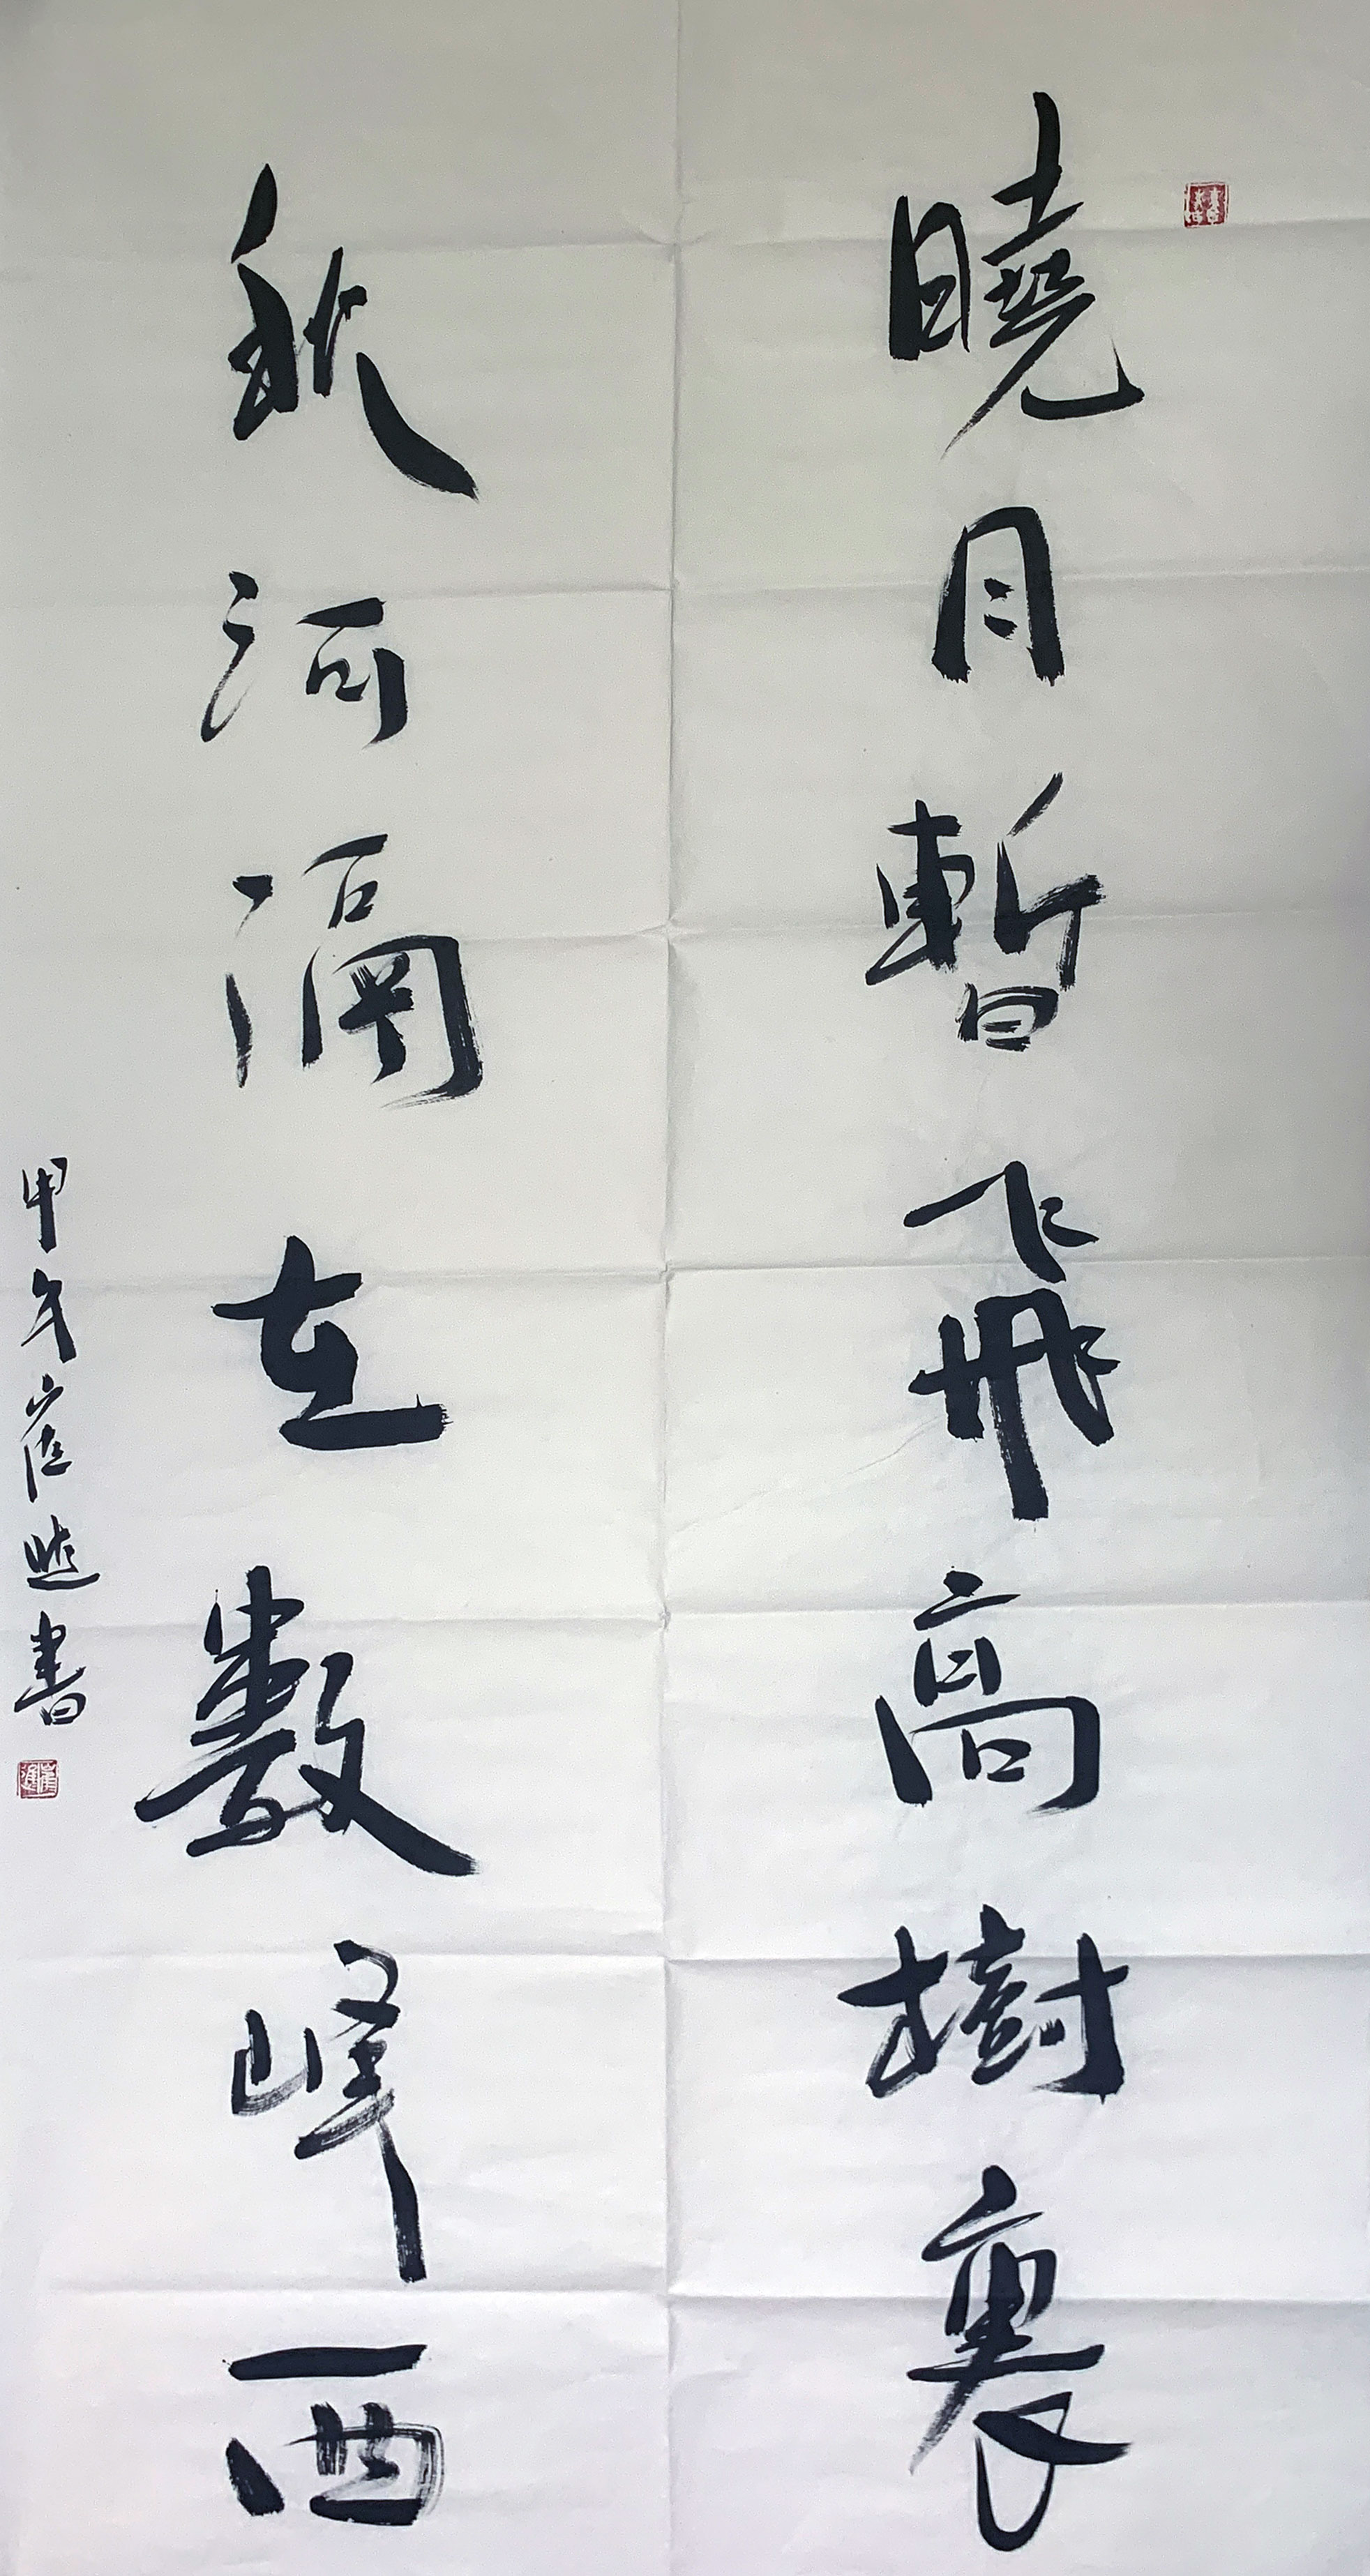 曉月暫飛高樹裏
秋河隔在數峰西
甲午崔進書